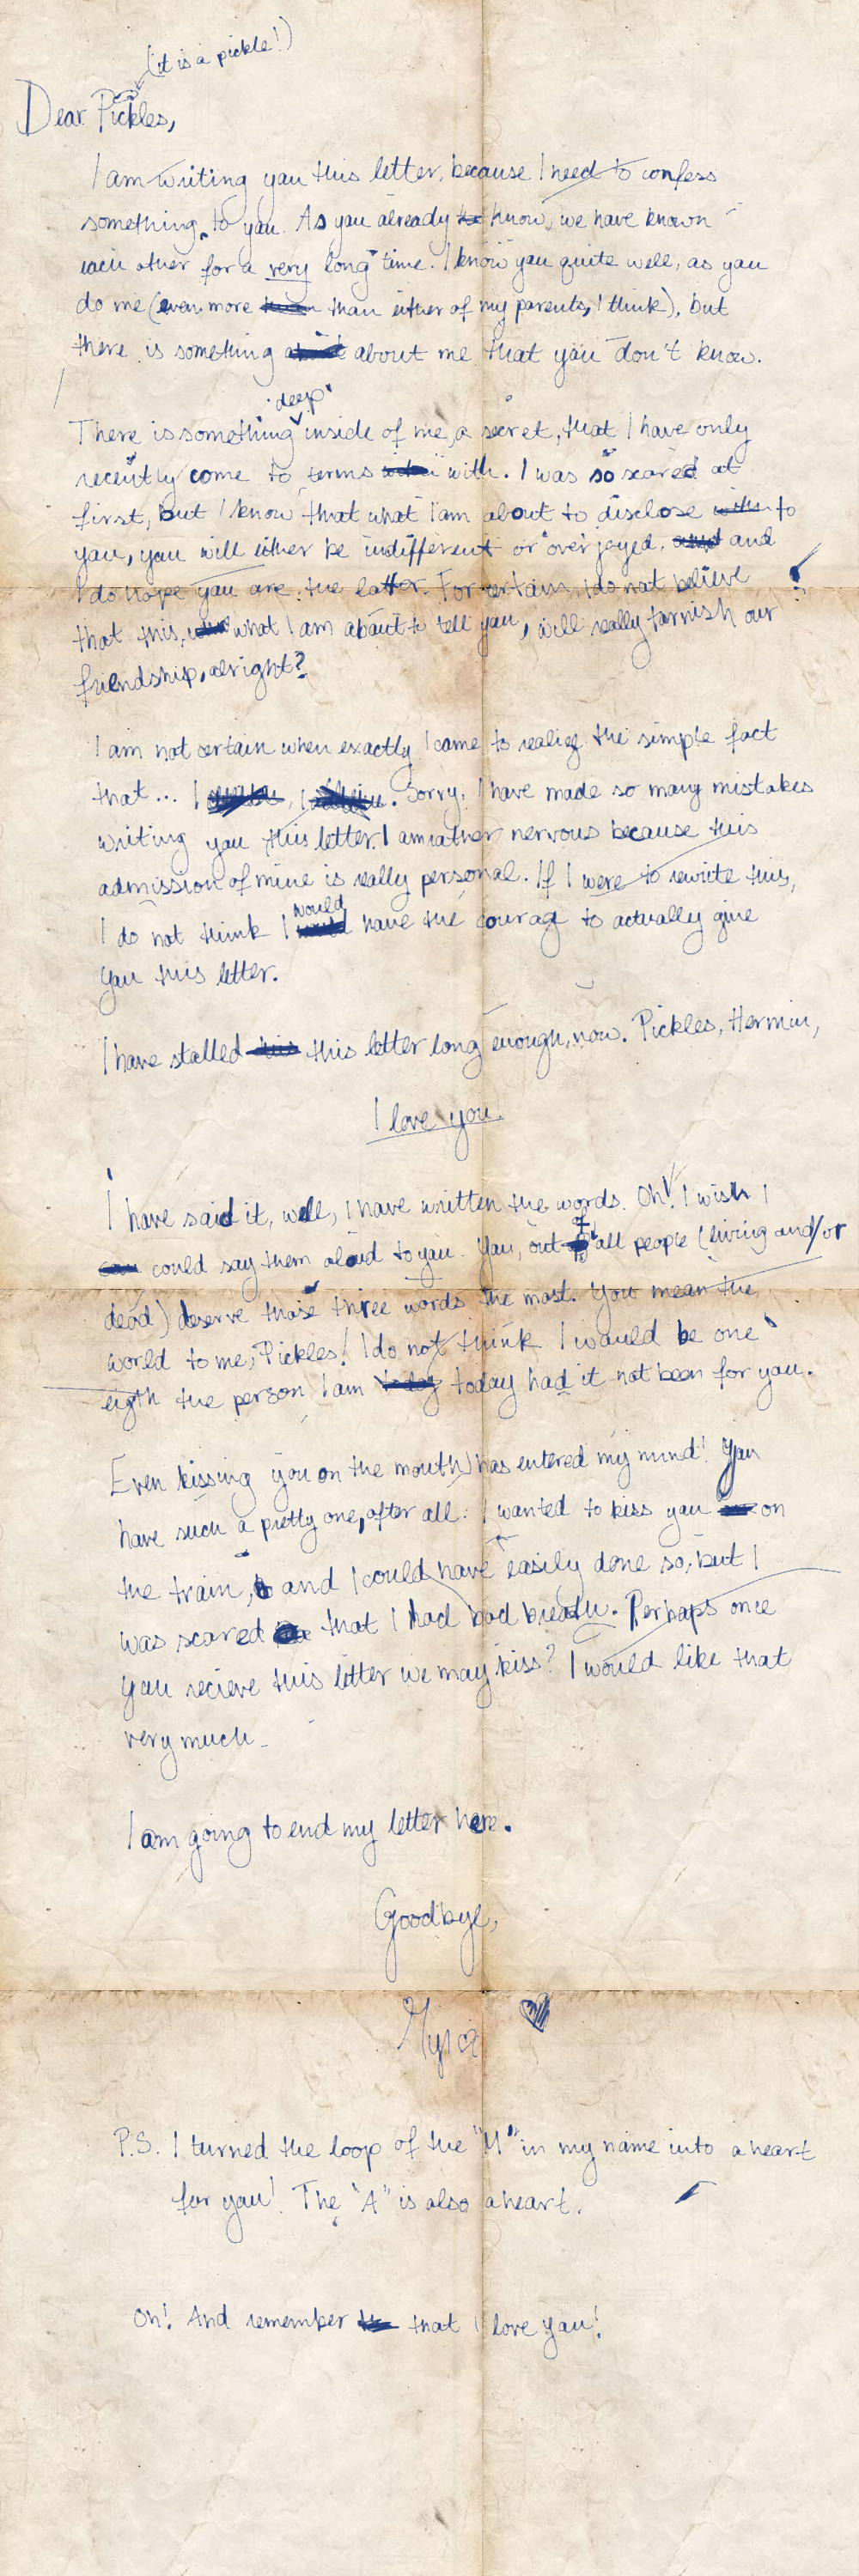 (it is a pickle!)
Dear Pickles,
I am writing you this letter, because I need to confess
something to you. As you already know, we have known
each other for a very long time. I know you quite well, as you
do me (even more than either of my parents, I think), but
there is something about me that you don't know.
deep
There is something inside of me, a secret, that I have only
recently come to terms with. I was so scared at
first, but I know that what I am about to disclose to
you, you will either be indifferent or overjoyed, and
I do hope you are the latter. For certain, I do not believe
that this, what I am about to tell you, will really tarnish our
friendship, alright?
I am not certain when exactly I came to realize the simple fact
that... I , I . Sorry, I have made so many mistakes
writing you this letter. I am rather nervous because this
admission of mine is really personal. If I were to rewrite this,
would
I do not think I have the courage to actually give
you this letter.
I have stalled this letter long enough, now. Pickles, Hermin,
I love you.
I have said it, well, I have written the words. Oh! I wish I
could say them aloud to you. You, out of all people (living and/or
dead) deserve those three words the most. You mean the
world to me, Pickles! I do not think I would be one
eigth the person I am today had it not been for you.
Even kissing you on the mouth has entered my mind! You
have such a pretty one, after all. I wanted to kiss you on
the train, and I could have easily done so, but I
was scared that I had bad breath. Perhaps once
you recieve this letter we may kiss? I would like that
very much.
I am going to end my letter here.
Goodbye,
P.S. I turned the loop of the "M" in my name into a heart
for you! The "A" is also a heart.
Oh! And remember that I love you!